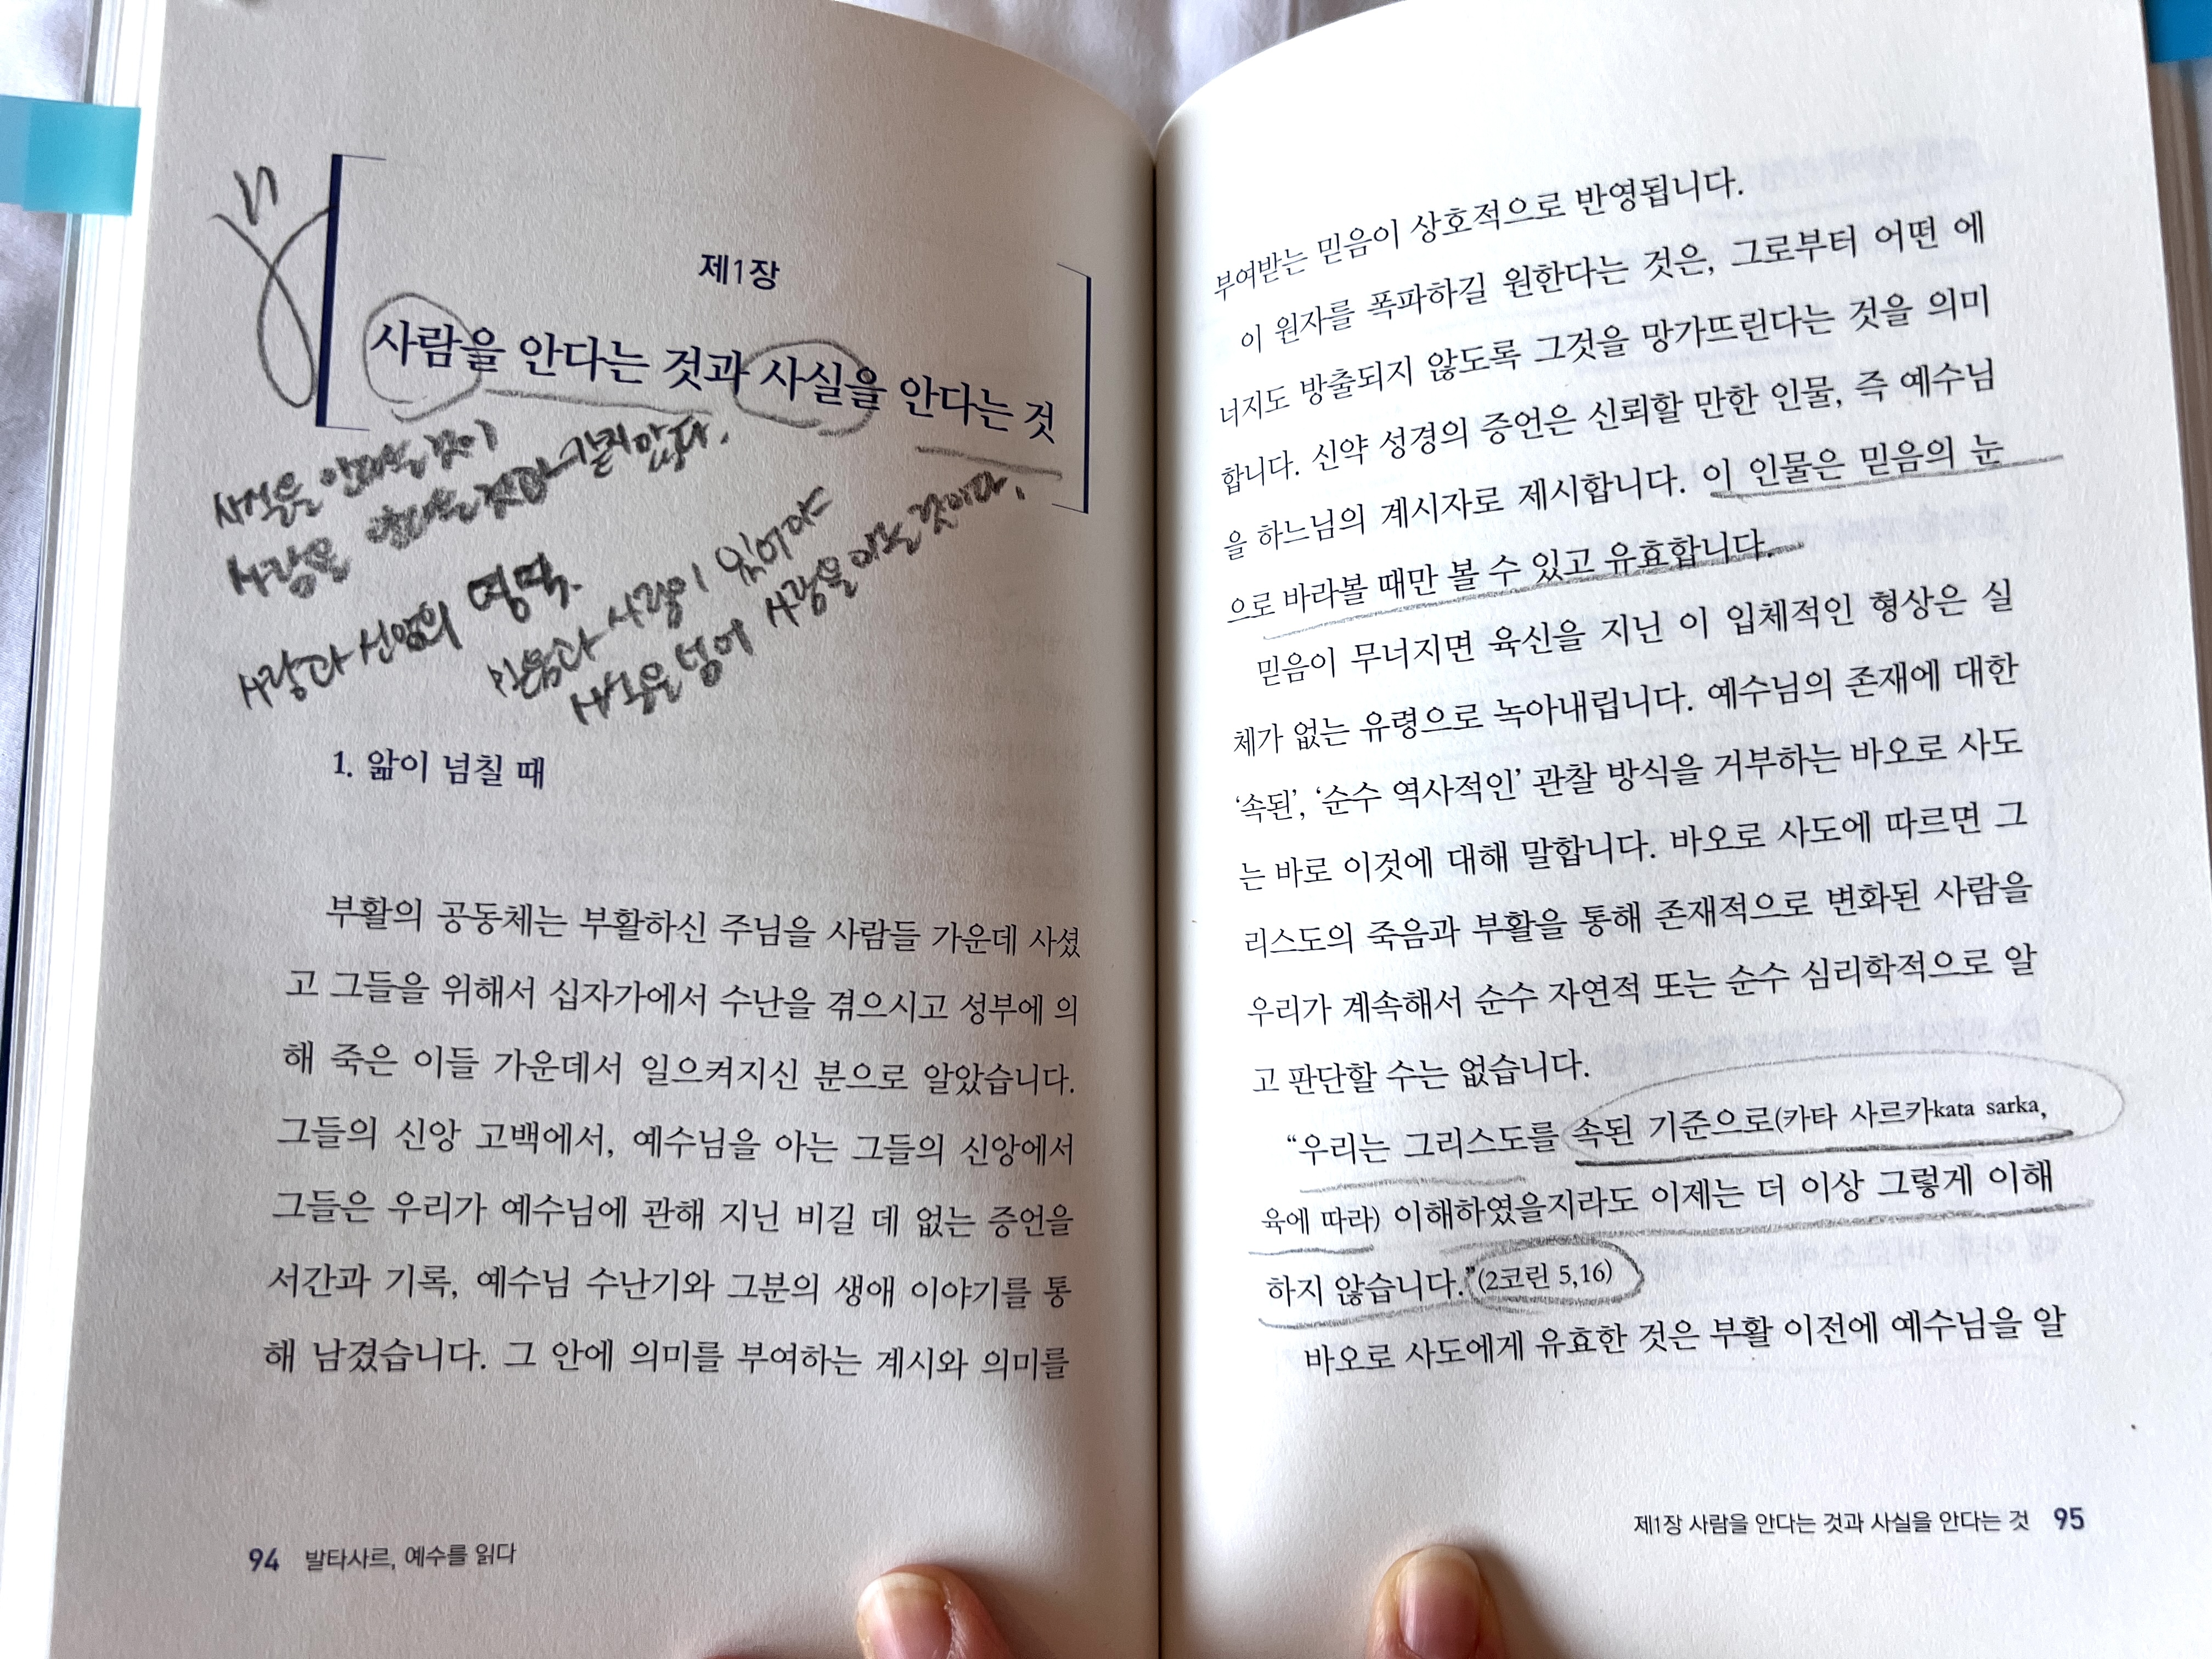 제1장
사람을 안다는 것과 사실을 안다는 것
사실을 안다는 것이
사람을 안다는 것과 같지 않다.
사랑과 신앙의 영역.
믿음과 사랑이 있어야
사실을 넘어 사람을 아는 것이다.
1. 앎이 넘칠 때
부활의 공동체는 부활하신 주님을 사람들 가운데 사셨
고 그들을 위해서 십자가에서 수난을 겪으시고 성부에 의
해 죽은 이들 가운데서 일으켜지신 분으로 알았습니다.
그들의 신앙 고백에서, 예수님을 아는 그들의 신앙에서
그들은 우리가 예수님에 관해 지닌 비길 데 없는 증언을
서간과 기록, 예수님 수난기와 그분의 생애 이야기를 통
해 남겼습니다. 그 안에 의미를 부여하는 계시와 의미를
94 발타사르, 예수를 읽다
부여받는 믿음이 상호적으로 반영됩니다.
이 원자를 폭파하길 원한다는 것은, 그로부터 어떤 에
너지도 방출되지 않도록 그것을 망가뜨린다는 것을 의미
합니다. 신약 성경의 증언은 신뢰할 만한 인물, 즉 예수님
을 하느님의 계시자로 제시합니다. 이 인물은 믿음의 눈
으로 바라볼 때만 볼 수 있고 유효합니다.
믿음이 무너지면 육신을 지닌 이 입체적인 형상은 실
체가 없는 유령으로 녹아내립니다. 예수님의 존재에 대한
‘속된’, ‘순수 역사적인’ 관찰 방식을 거부하는 바오로 사도
는 바로 이것에 대해 말합니다. 바오로 사도에 따르면 그
리스도의 죽음과 부활을 통해 존재적으로 변화된 사람을
우리가 계속해서 순수 자연적 또는 순수 심리학적으로 알
고 판단할 수는 없습니다.
“우리는 그리스도를 속된 기준으로(카타 사르카kata sarka,
육에 따라) 이해하였을지라도 이제는 더 이상 그렇게 이해
하지 않습니다.”(2코린 5,16)
바오로 사도에게 유효한 것은 부활 이전에 예수님을 알
제1장 사람을 안다는 것과 사실을 안다는 것 95